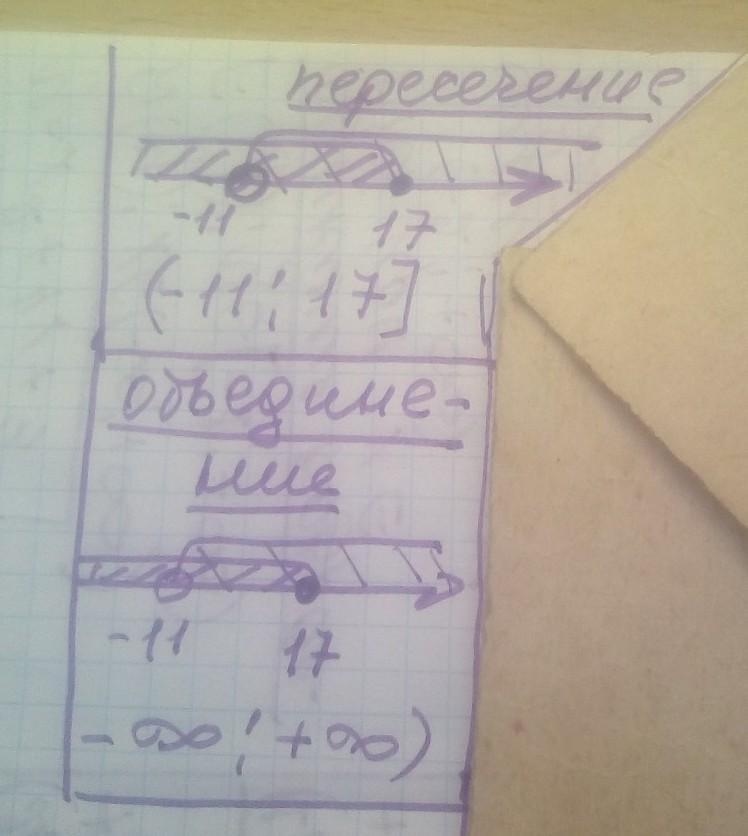 пересечение
-11 17
(-11; 17]
объедине-
ние
-11 17
-∞; +∞)